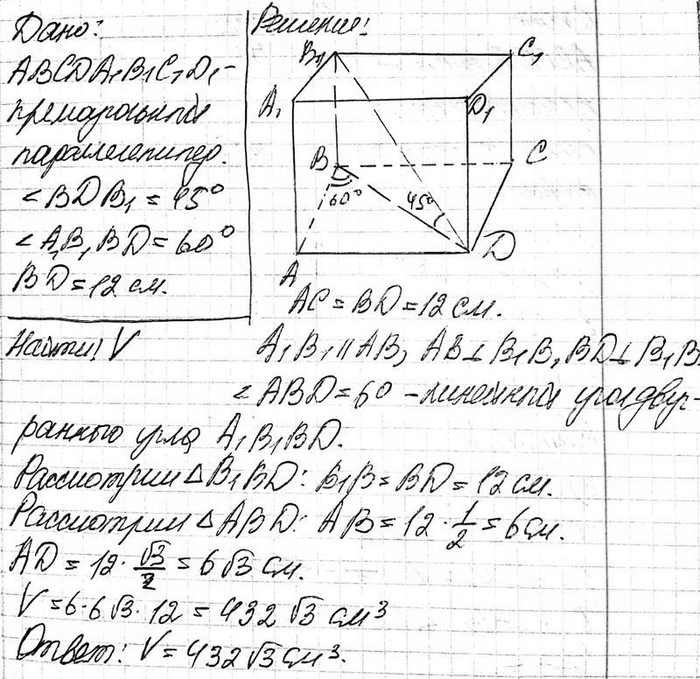 Дано:
ABCDA₁B₁C₁D₁ -
прямоугольный
параллелепипед.
∠BDB₁ = 45°
∠A₁B₁BD = 60°
BD = 12 см.
Найти: V
Решение:
B₁
C₁
A₁
D₁
B
C
60°
45°
A
D
AC = BD = 12 см.
A₁B₁ || AB, AB ⊥ B₁B, BD ⊥ B₁B
∠ABD = 60 - линейный угол двуг-
ранного угла A₁B₁BD.
Рассмотрим △B₁BD: B₁B = BD = 12 см.
Рассмотрим △ABD: AB = 12 · 1/2 = 6 см.
AD = 12 · √3/2 = 6√3 см.
V = 6 · 6√3 · 12 = 432√3 см³
Ответ: V = 432√3 см³.